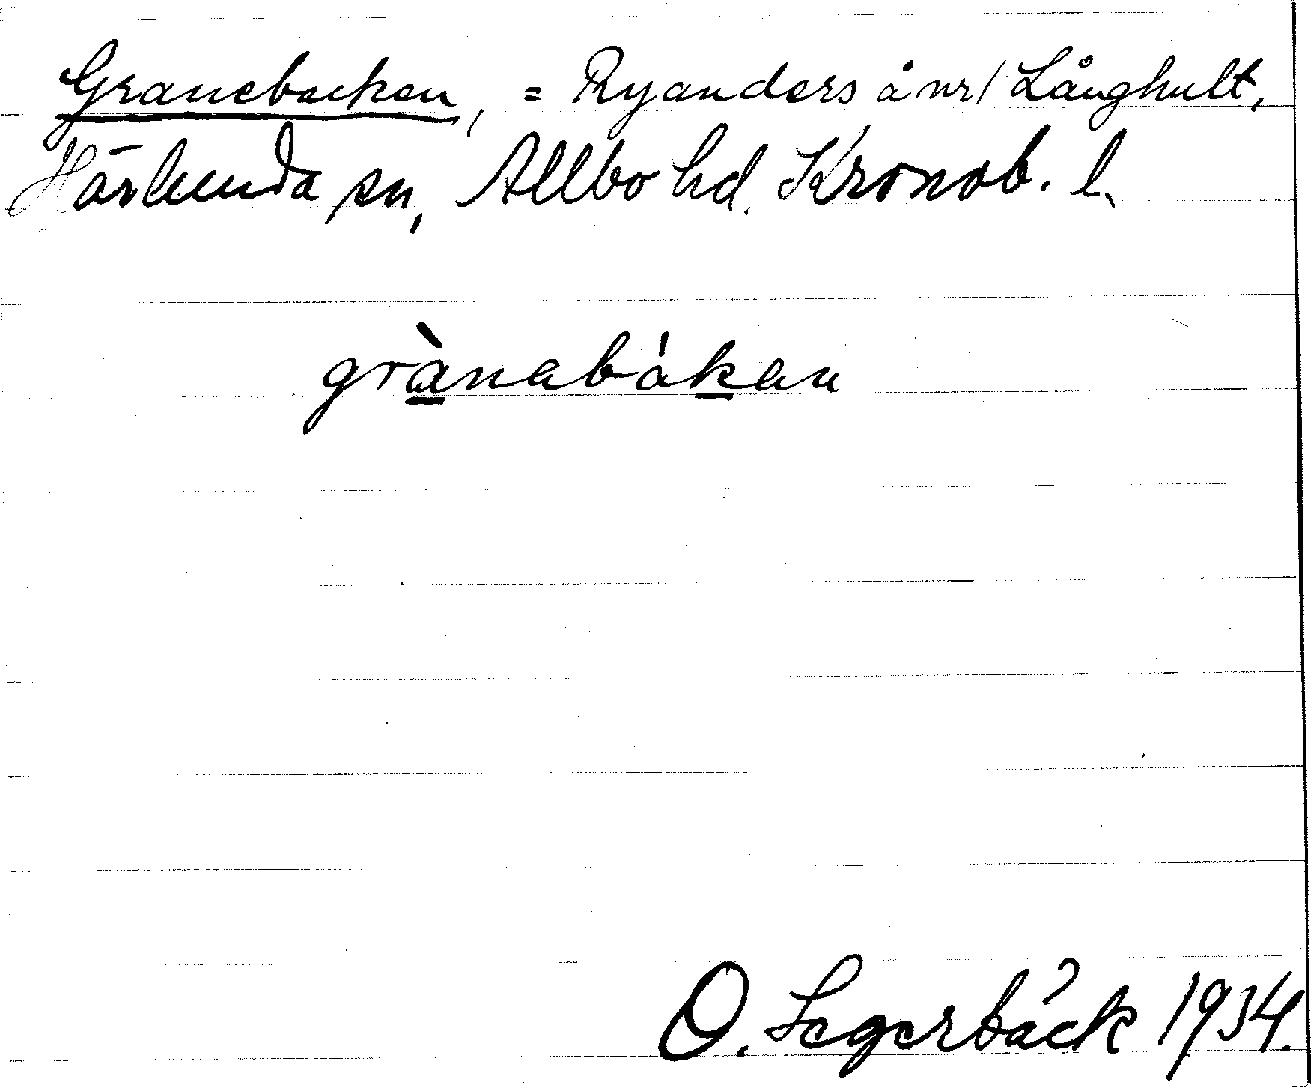 Granebacken, = Ryanders å nr 1 Långhult,
Härlunda sn, Allbo hd. Kronob. l.
grànabákan
O. Segerbäck 1934.